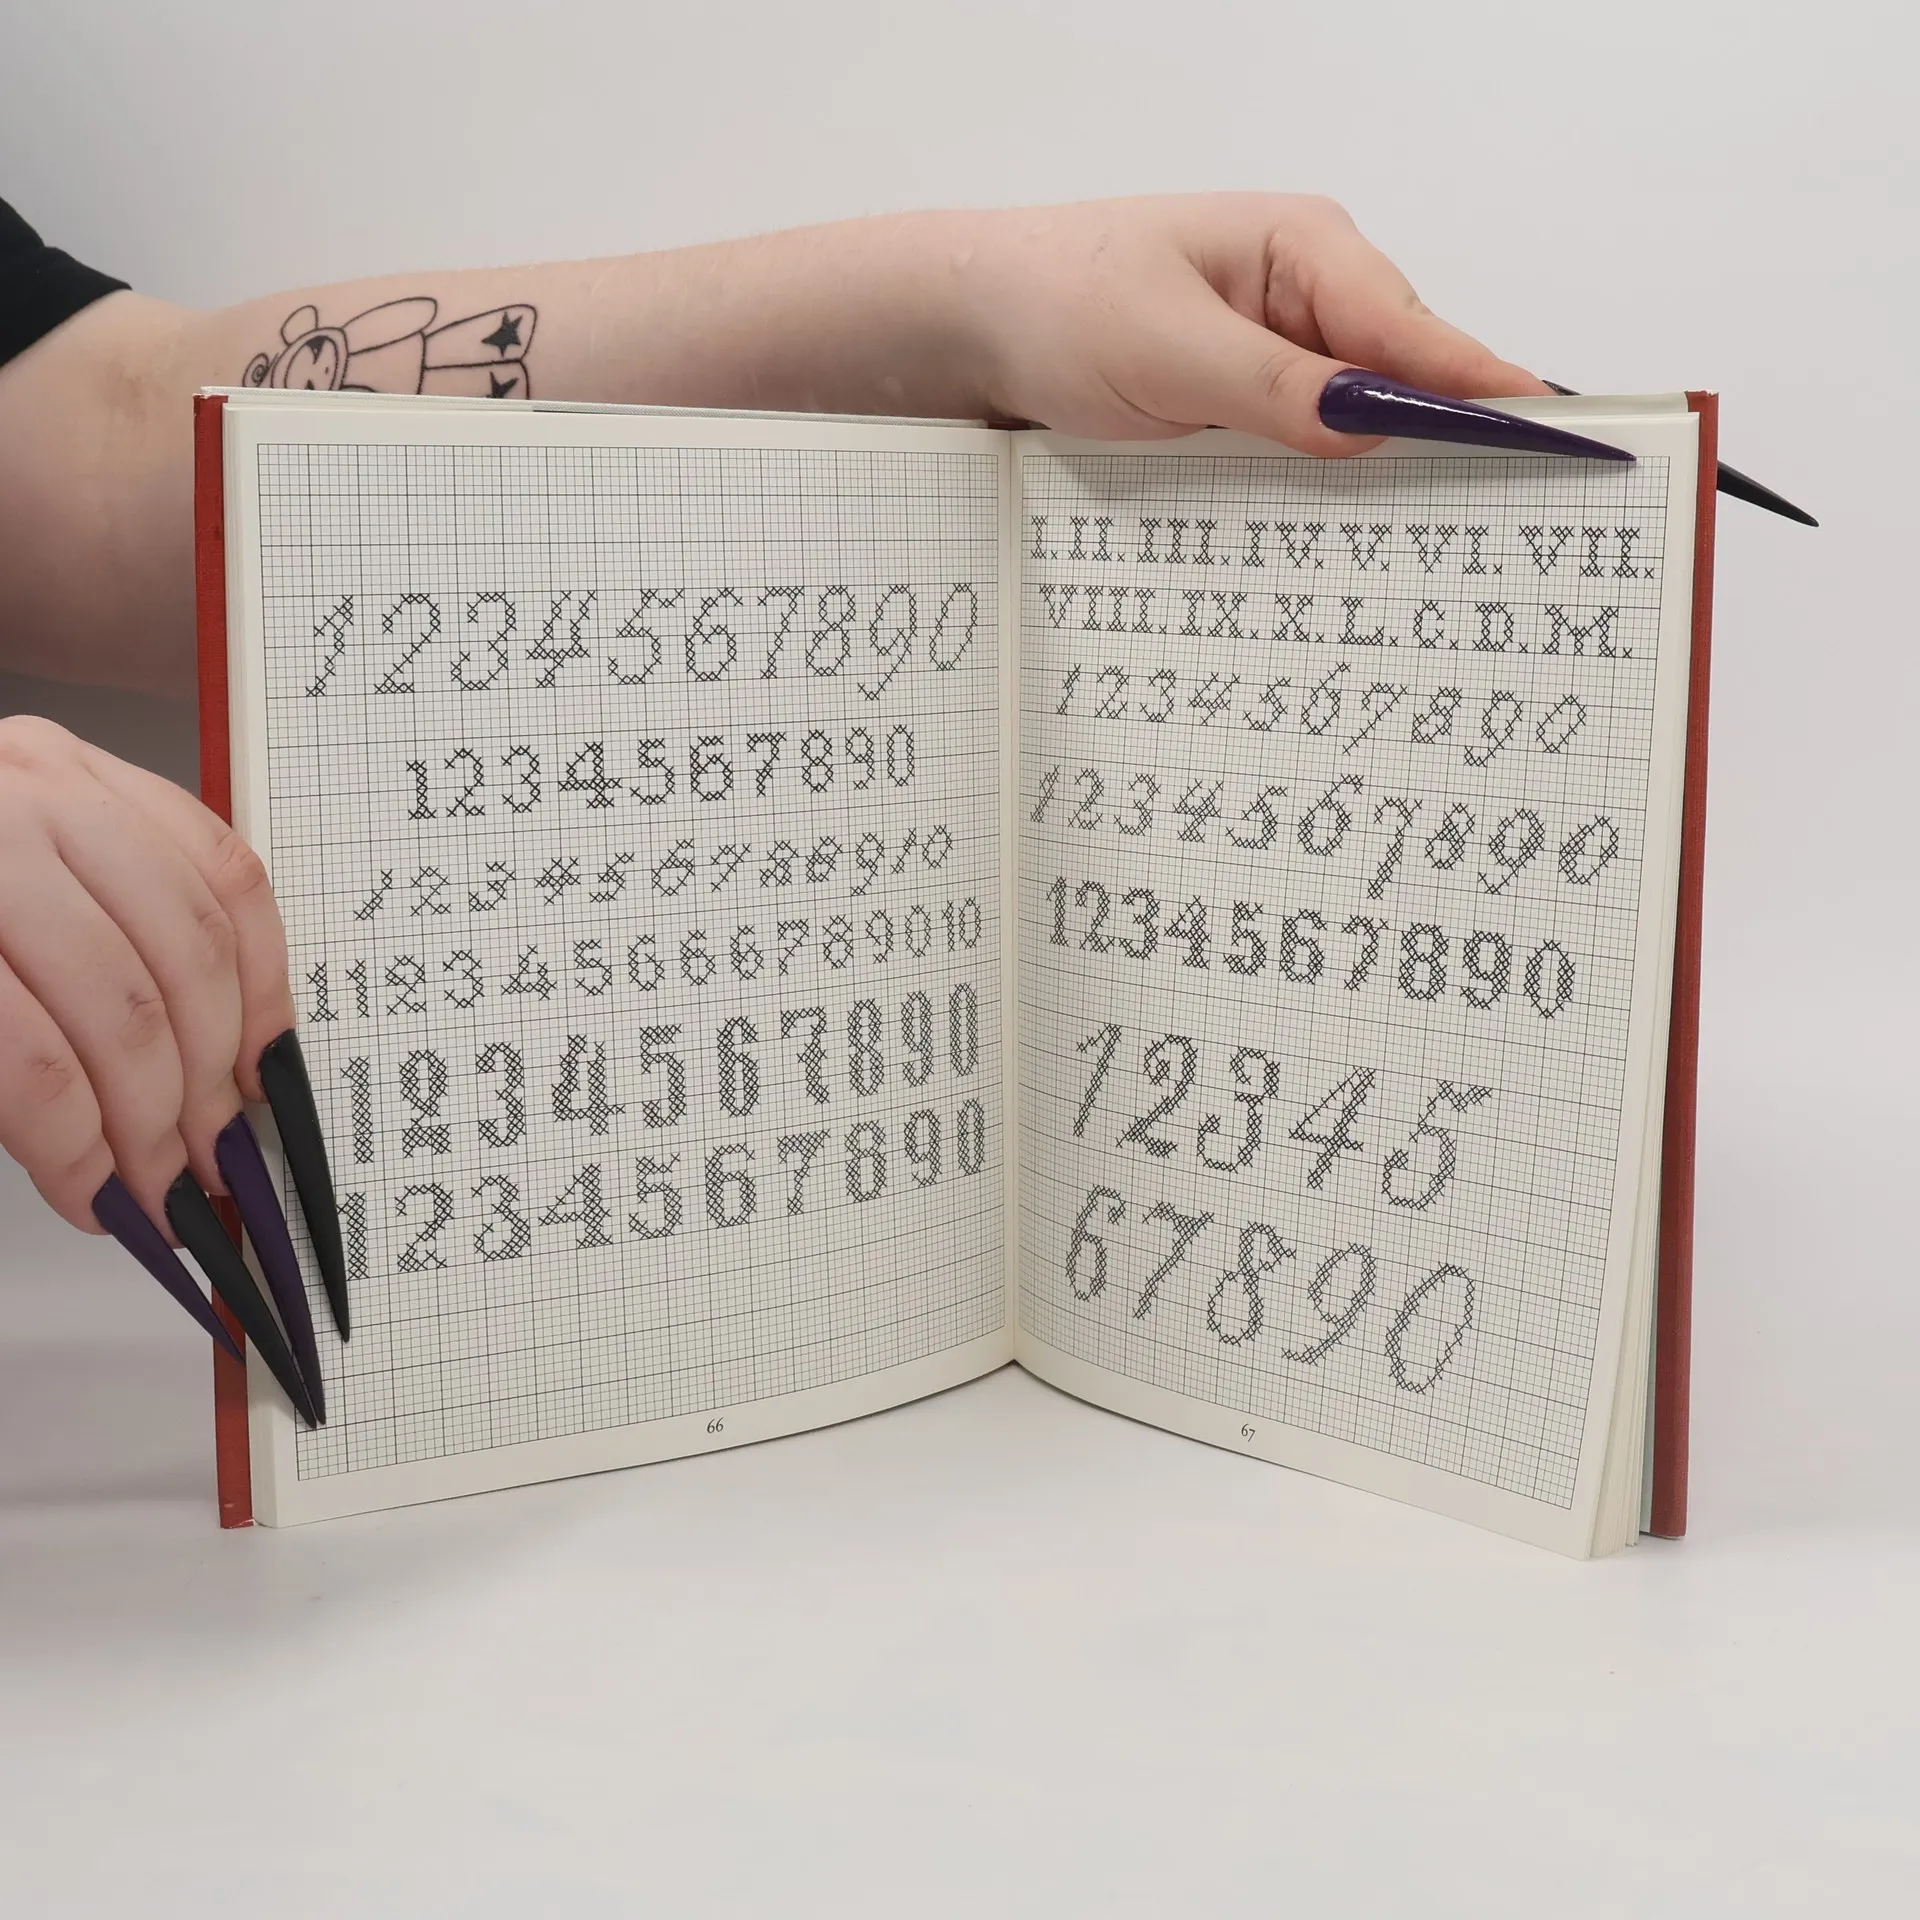 1234567890
1234567890
123456788910
112345666789010
1234567890
1234567890
66
I. II. III. IV. V. VI. VII.
VIII. IX. X. L. C. D. M.
1234567890
1234567890
1234567890
12345
67890
67